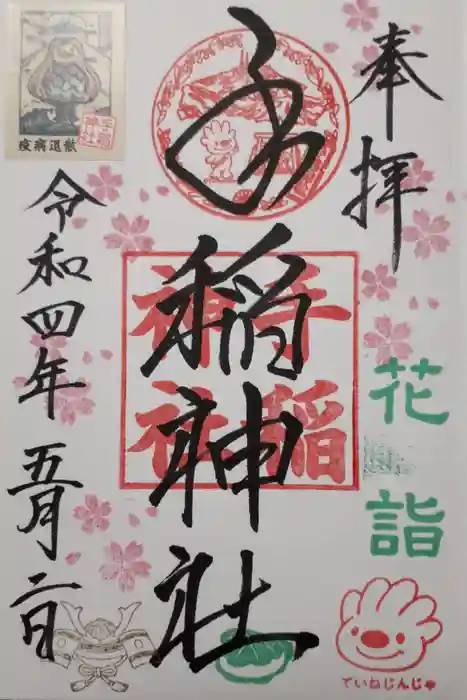 奉拝
花詣
手稲神社
手稲神社
令和四年五月二日
疫病退散
ていねじんじゃ